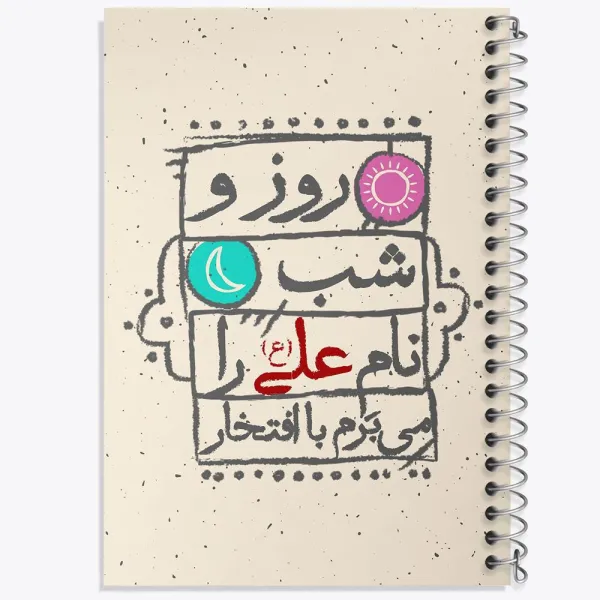 روز و
شب
نام علی (ع) را
می بَرم با افتخار